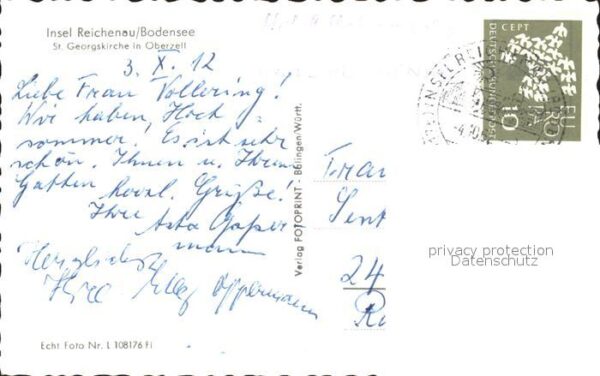 Insel Reichenau/Bodensee
St. Georgskirche in Oberzell
3. X. 12
Liebe Frau Vollering!
Wir haben, Hoch-
sommer. Es ist sehr
schön. Ihnen u. Ihrem
Gatten herzl. Grüße!
Ihre Asta Opper
mann
Herzlichst
Ihre Oppermann
Echt Foto Nr. L 108176 Fi
Verlag FOTOPRINT - Böblingen/Württ.
CEPT
DEUTSCHE BUNDESPOST
EUROPA
10
INSEL REICHENAU
Frau
24
privacy protection
Datenschutz